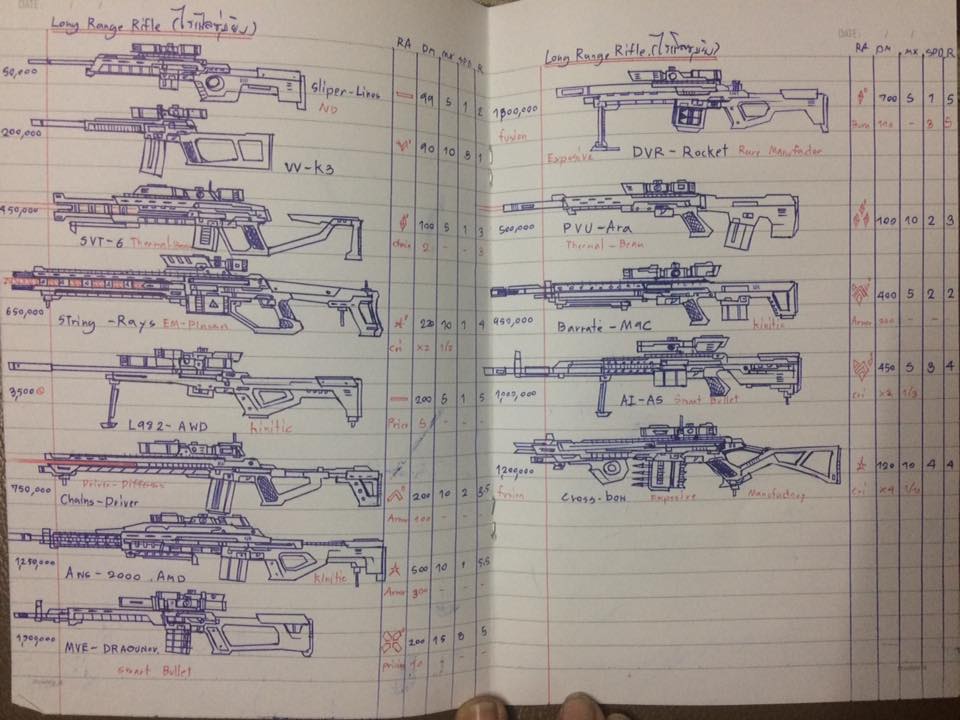 Long Range Rifle
RA DM MX SPD R
50,000 Sliper-Lines 99 5 1 2
No
200,000 VV-K3 90 10 3 1
450,000 SVT-6 Thermal-Beam 100 5 1 3
chain 2 - - 3
650,000 String-Rays EM-Plasan 220 10 1 4
cri x2 1/2
3,500 L982-AWD kinitic 200 5 1 5
Price 5 - - -
750,000 Chains-Driver 200 10 2 3.5
Armor 100 - - -
1,250,000 ANG-2000.AMD kinitic 500 10 1 5.5
Armor 300 - -
MVE-DRAOUNOV. 200 15 8 5
Smart Bullet
Long Range Rifle
DATE:
RA DM MX SPD R
1,800,000 DVR-Rocket Rare Manufactor 700 5 1 5
fusion Exposive Burn 100 - 3 5
500,000 PVU-Ara 100 10 2 3
Thermal-Beam
950,000 Barrate-M9C kinitic 400 5 2 2
Armor 200 - -
1,000,000 AI-AS Smart Bullet 450 5 3 4
cri x2 1/3
1,200,000 Cross-bow Exposive Manufactory 120 10 4 4
cri x4 1/10